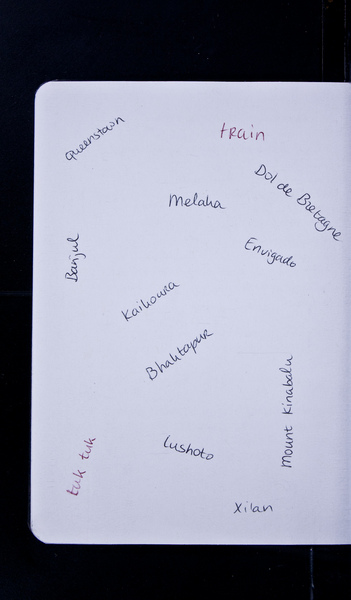 Queenstown
train
Dol de Bretagne
Melaka
Envigado
Banjul
Kaikoura
Bhaktapur
Mount Kinabalu
tuk tuk
Lushoto
Xilan